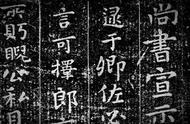 尚書宣示
逮于卿佐
言可擇郎
所貺公私見